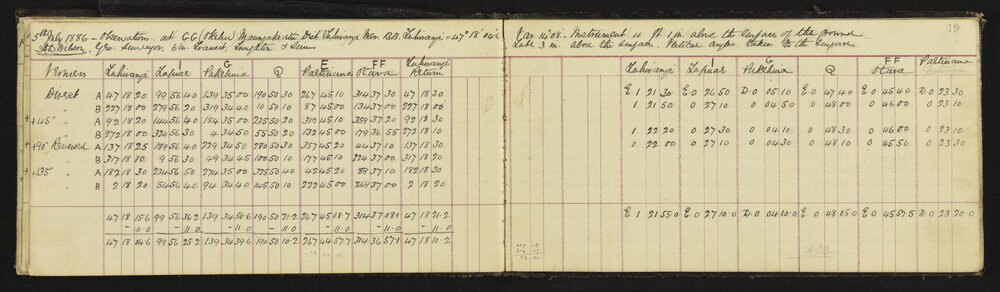 5th July 1886 - Observations at GG (Okehu) Maungakaretu Dist Tuhiwangi BB. Tuhiwangi - 47° 18' 04"6
Wilson, Gov Surveyor, 6 in Transit, Troughton & Simms
Var 14° 08'. Instrument 4 ft 1 in above the surface of the ground
Tube 3 in. above the surface. Vertical angles taken to the surface
19
G E FF
Tuhiwangi Tapuar Pukehina Q Pattinana Otara Tuhiwangi Return
Direct A 47 18 20 99 56 40 139 35 00 190 50 30 267 45 10 314 37 30 47 18 30
B 227 18 00 279 56 20 319 34 40 10 50 10 87 45 00 134 37 00 227 18 06
+45° A 92 18 20 144 56 40 184 35 00 235 50 20 312 45 10 359 37 20 92 18 30
B 272 18 00 324 56 30 4 34 50 55 50 20 132 45 00 179 36 55 272 18 10
+90° Reversed A 137 18 25 189 56 40 229 34 50 280 50 30 357 45 20 44 37 10 137 18 30
B 317 18 10 9 56 30 49 34 45 100 50 10 177 45 10 224 37 00 317 18 20
+135° A 182 18 30 234 56 50 274 35 00 325 50 40 42 45 20 89 37 10 182 18 30
B 2 18 20 54 56 40 94 34 40 145 50 10 222 45 00 269 37 00 2 18 20
47 18 15.6 99 56 36.2 139 34 50.6 190 50 21.2 267 45 08.7 314 37 08.1 47 18 21.2
- 11.0 - 11.0 - 11.0 - 11.0 - 11.0 - 11.0 - 11.0
47 18 04.6 99 56 25.2 139 34 39.6 190 50 10.2 267 44 57.7 314 36 57.1 47 18 10.2
G FF
Tuhiwangi Tapuar Pukehina Q Otara Pattinana
E 1 21 30 E 0 26 50 D 0 05 10 E 0 47 40 E 0 45 40 D 0 23 30
1 21 50 0 27 10 0 04 50 0 48 00 0 46 00 0 23 10
1 22 20 0 27 30 0 04 10 0 48 30 0 46 00 0 23 10
1 22 00 0 27 10 0 04 30 0 48 10 0 45 50 0 23 30
E 1 21 55.0 E 0 27 10.0 D 0 04 40.0 E 0 48 05.0 E 0 45 52.5 D 0 23 20.0